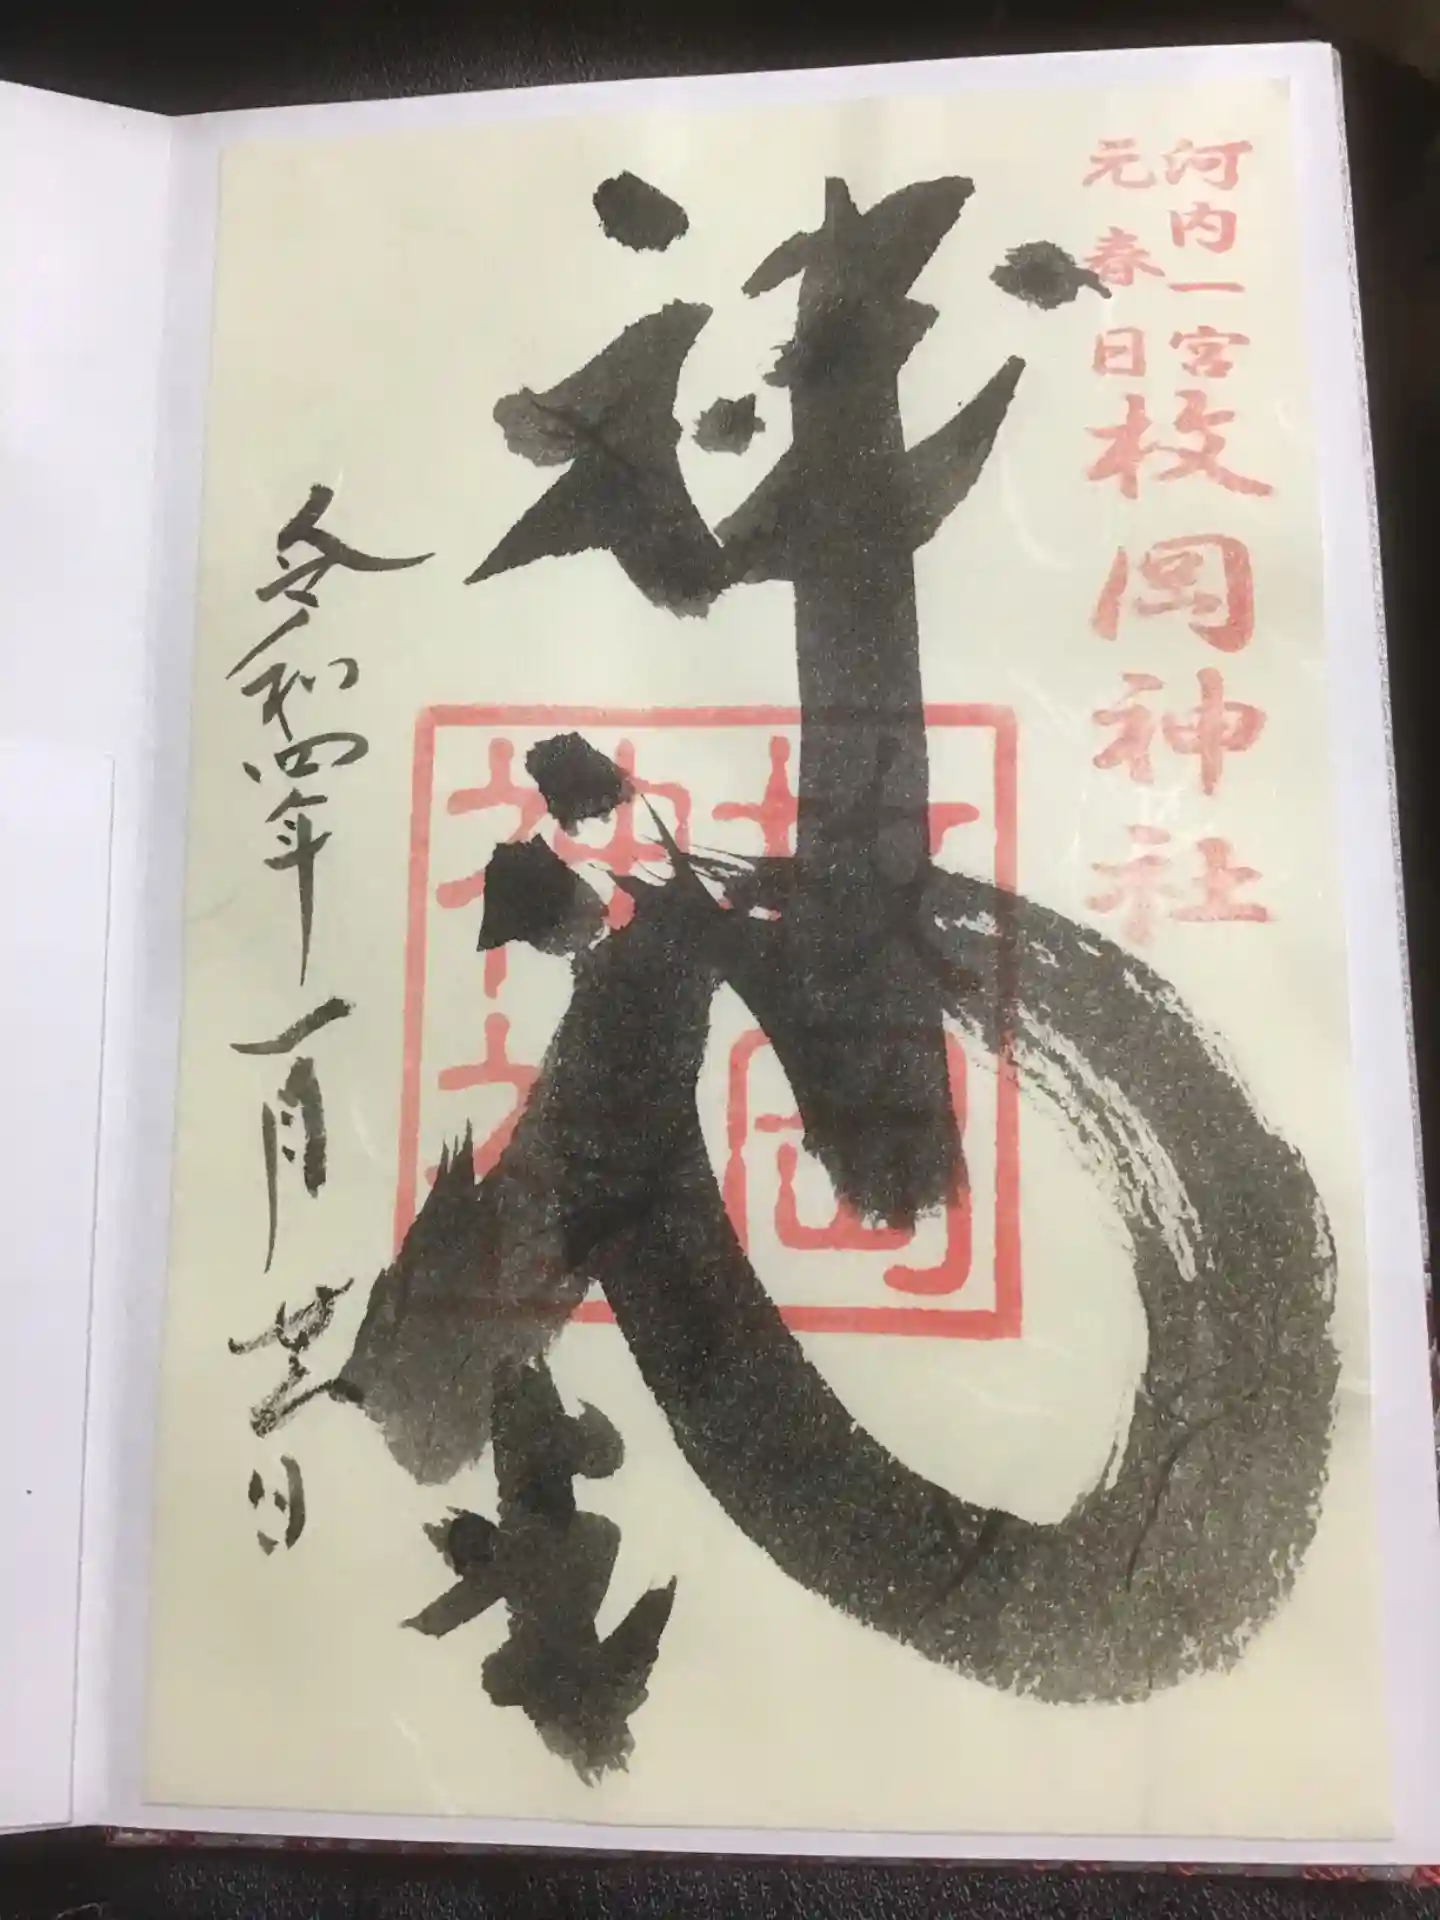 河内一宮
元春日
枚岡神社
祥
枚岡
神社
令和四年一月 日